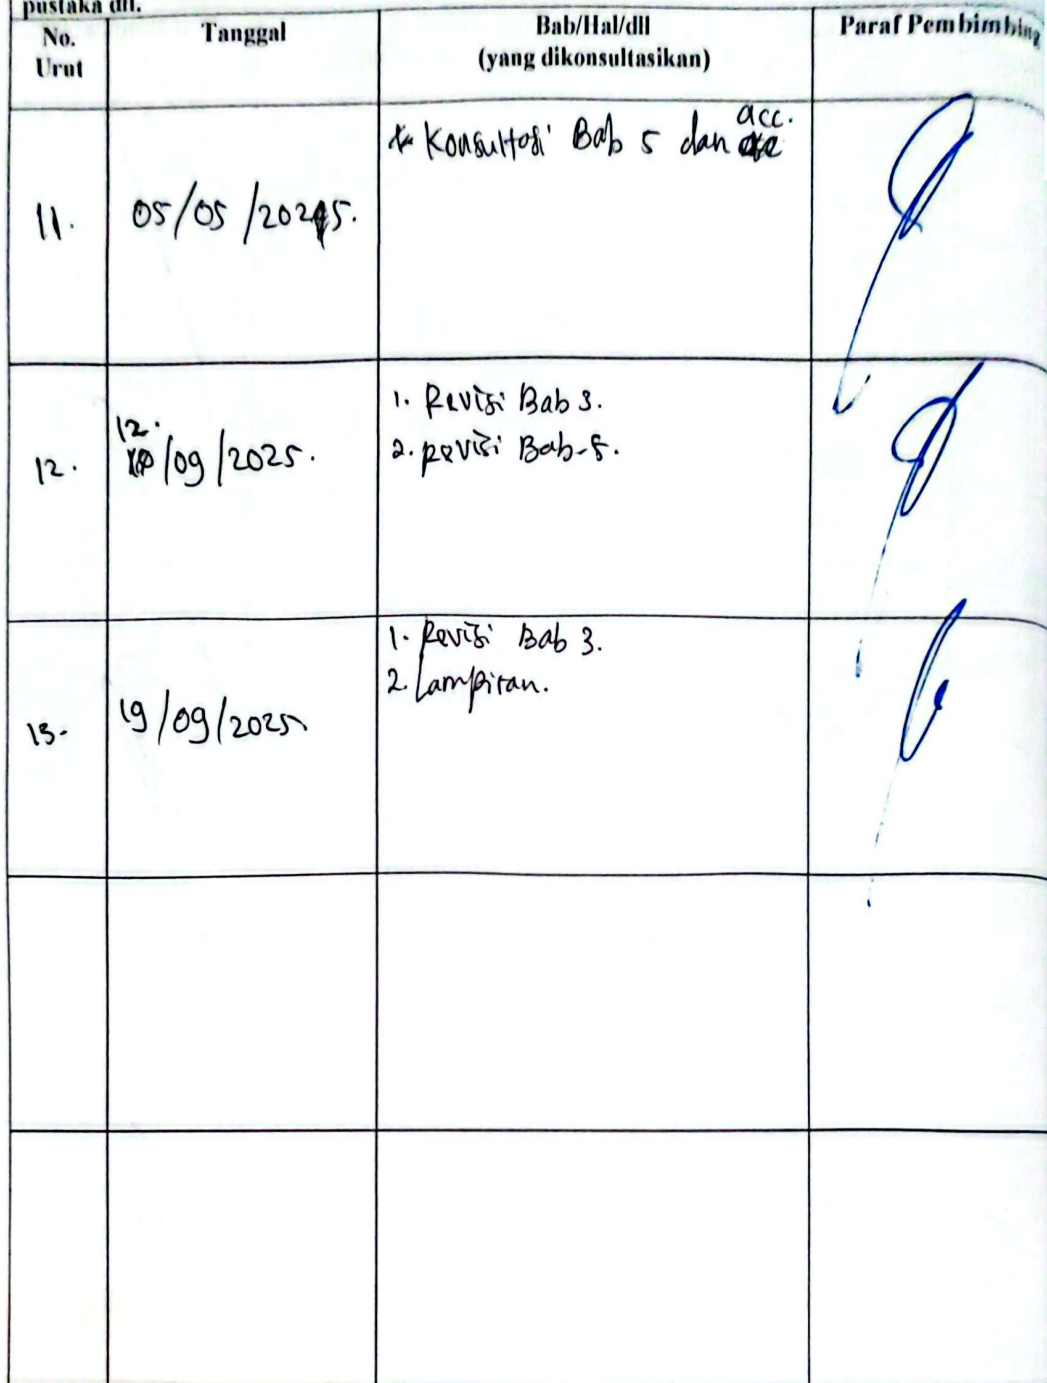 pustaka dll.
No. Urut
Tanggal
Bab/Hal/dll
(yang dikonsultasikan)
Paraf Pembimbing
11.
05/05/2025.
* Konsultasi Bab 5 dan acc.
12.
12.
/09/2025.
1. Revisi Bab 3.
2. Revisi Bab-5.
13.
19/09/2025
1. Revisi Bab 3.
2. Lampiran.